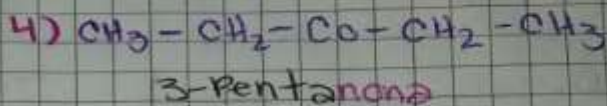 4) CH₃ - CH₂ - CO - CH₂ - CH₃
3-Pentanona